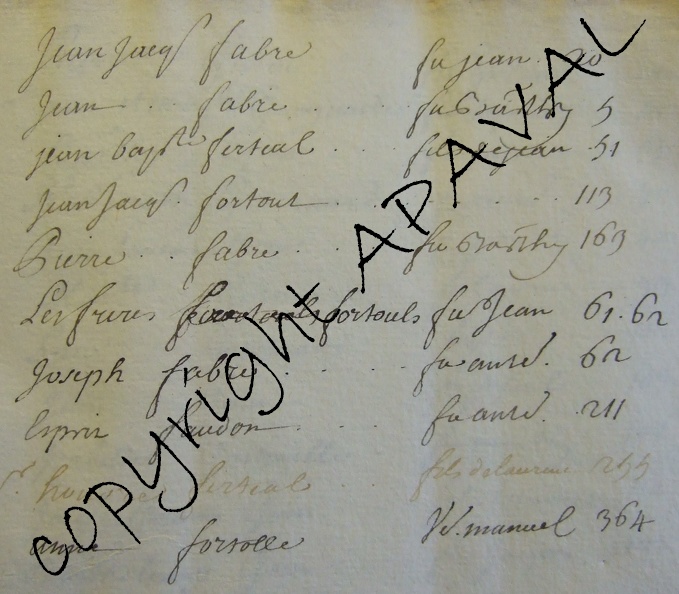 Jean Jacqs fabre fu jean 20
Jean fabre fu Barthy 5
jean bapte ferteal fils de jean 51
Jean Jacqs fortout 113
Pierre fabre fu Barthy 163
Les freres fortouls fu Jean 61.62
Joseph fabre fu anté. 62
Esprit flaudon fu anté. 211
ferteal fils de laurens 255
anne fortolle Ve. manuel 364
copyright APAVAL